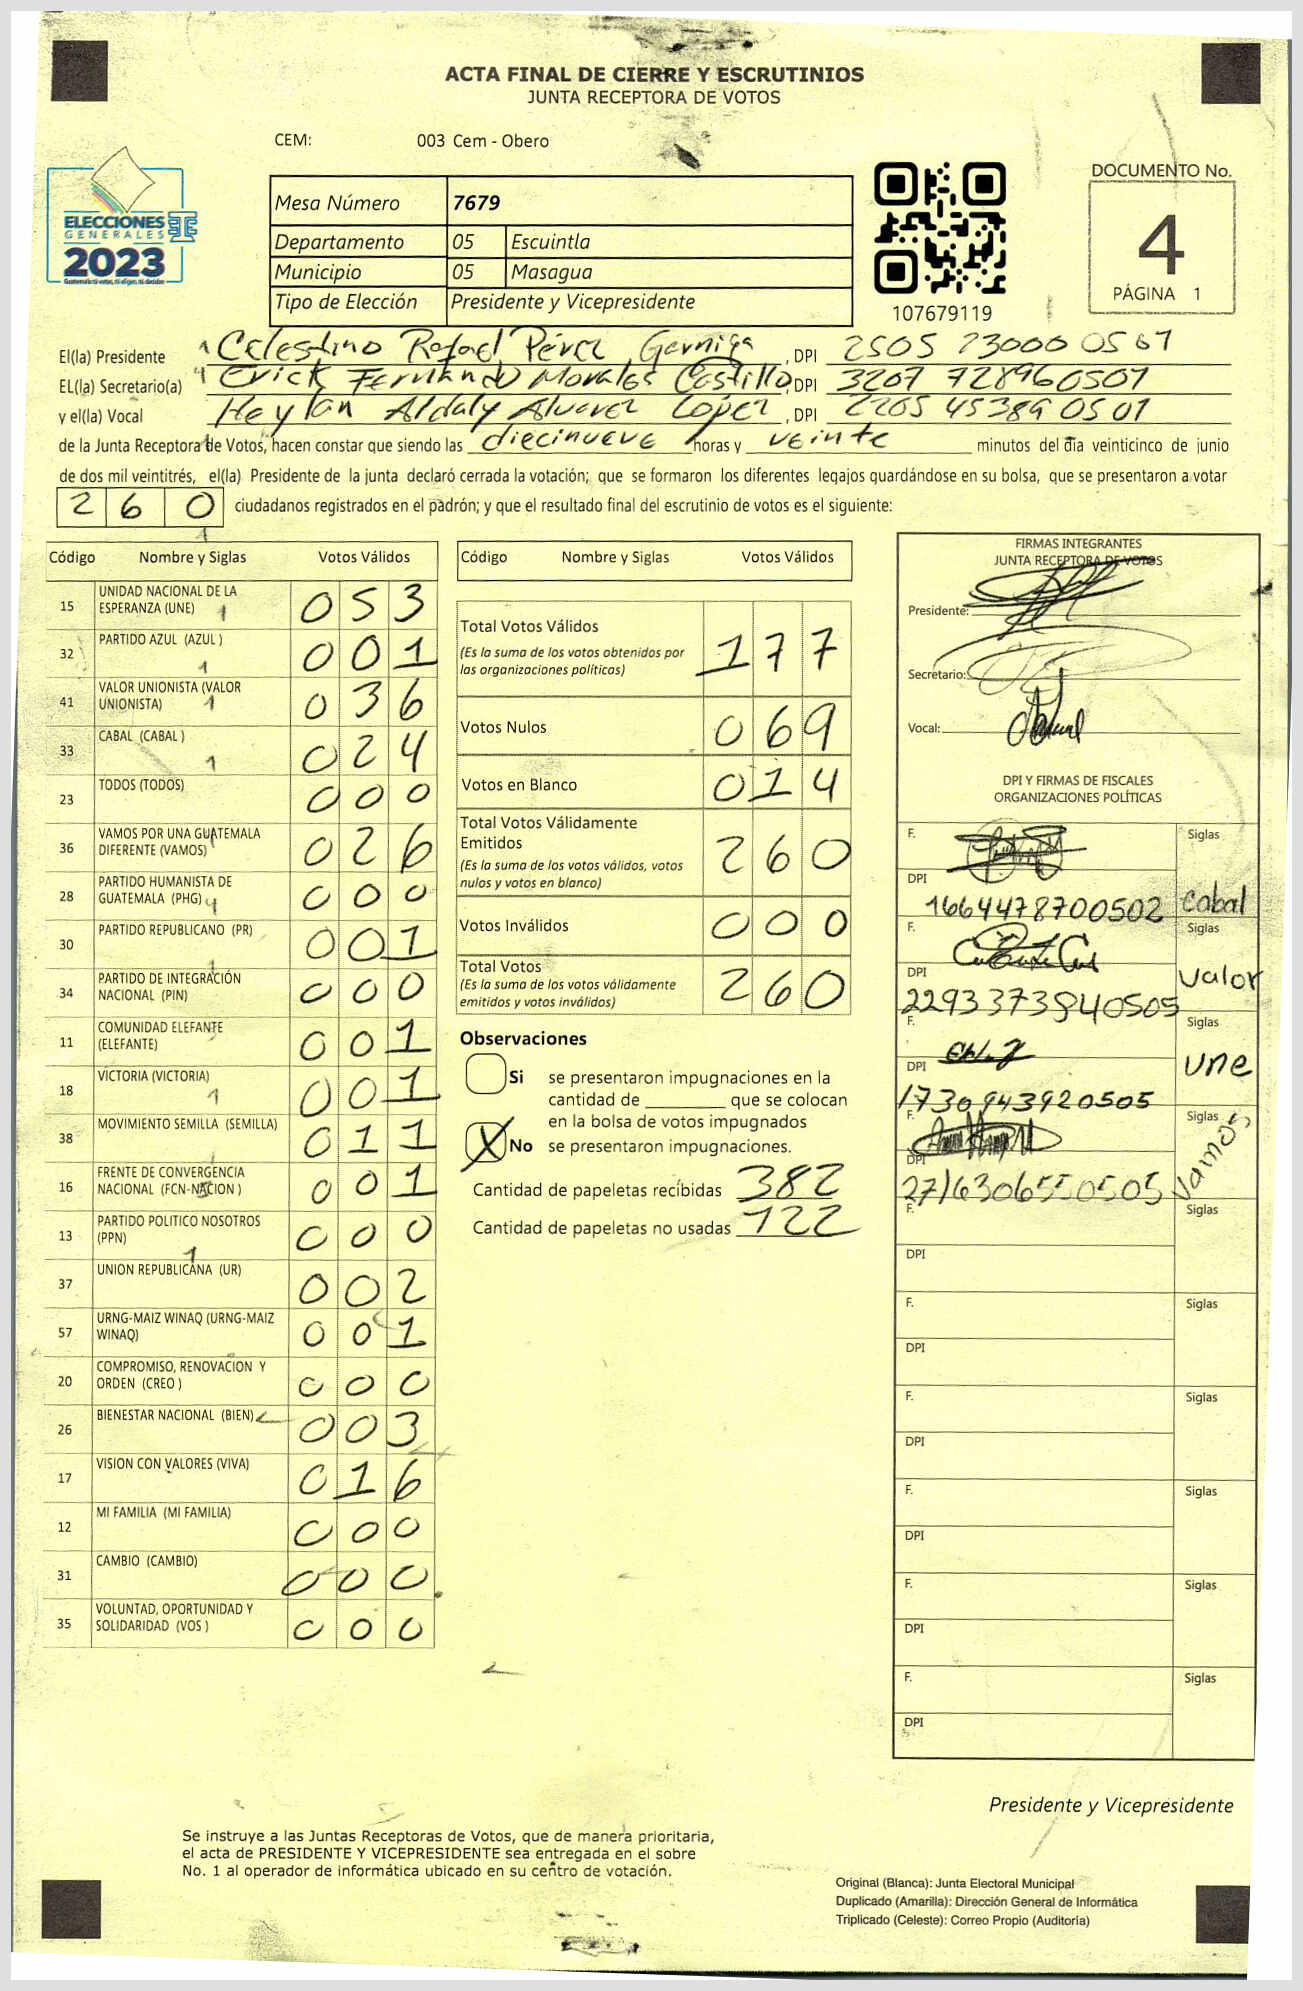 ACTA FINAL DE CIERRE Y ESCRUTINIOS
JUNTA RECEPTORA DE VOTOS
CEM: 003 Cem - Obero
ELECCIONES
GENERALES
2023
Mesa Número 7679
Departamento 05 Escuintla
Municipio 05 Masagua
Tipo de Elección Presidente y Vicepresidente
107679119
DOCUMENTO No.
4
PÁGINA 1
El(la) Presidente Celestino Rafael Pérez , DPI 2505 23000 0567
EL(la) Secretario(a) Erick Fernando Morales Castillo, DPI 3207 728960507
y el(la) Vocal Heylan Aldaly Alvarez López , DPI 2265 45389 0501
de la Junta Receptora de Votos, hacen constar que siendo las diecinueve horas y veinte minutos del día veinticinco de junio
de dos mil veintitrés, el(la) Presidente de la junta declaró cerrada la votación; que se formaron los diferentes legajos guardándose en su bolsa, que se presentaron a votar
2 6 0 ciudadanos registrados en el padrón; y que el resultado final del escrutinio de votos es el siguiente:
Código Nombre y Siglas Votos Válidos
15 UNIDAD NACIONAL DE LA ESPERANZA (UNE) 0 5 3
32 PARTIDO AZUL (AZUL ) 0 0 1
41 VALOR UNIONISTA (VALOR UNIONISTA) 0 3 6
33 CABAL (CABAL ) 0 2 4
23 TODOS (TODOS) 0 0 0
36 VAMOS POR UNA GUATEMALA DIFERENTE (VAMOS) 0 2 6
28 PARTIDO HUMANISTA DE GUATEMALA (PHG) 0 0 0
30 PARTIDO REPUBLICANO (PR) 0 0 1
34 PARTIDO DE INTEGRACIÓN NACIONAL (PIN) 0 0 0
11 COMUNIDAD ELEFANTE (ELEFANTE) 0 0 1
18 VICTORIA (VICTORIA) 0 0 1
38 MOVIMIENTO SEMILLA (SEMILLA) 0 1 1
16 FRENTE DE CONVERGENCIA NACIONAL (FCN-NACION ) 0 0 1
13 PARTIDO POLITICO NOSOTROS (PPN) 0 0 0
37 UNION REPUBLICANA (UR) 0 0 2
57 URNG-MAIZ WINAQ (URNG-MAIZ WINAQ) 0 0 1
20 COMPROMISO, RENOVACION Y ORDEN (CREO ) 0 0 0
26 BIENESTAR NACIONAL (BIEN) 0 0 3
17 VISION CON VALORES (VIVA) 0 1 6
12 MI FAMILIA (MI FAMILIA) 0 0 0
31 CAMBIO (CAMBIO) 0 0 0
35 VOLUNTAD, OPORTUNIDAD Y SOLIDARIDAD (VOS ) 0 0 0
Código Nombre y Siglas Votos Válidos
Total Votos Válidos 1 7 7
(Es la suma de los votos obtenidos por
las organizaciones políticas)
Votos Nulos 0 6 9
Votos en Blanco 0 1 4
Total Votos Válidamente
Emitidos 2 6 0
(Es la suma de los votos válidos, votos
nulos y votos en blanco)
Votos Inválidos 0 0 0
Total Votos 2 6 0
(Es la suma de los votos válidamente
emitidos y votos inválidos)
Observaciones
Si se presentaron impugnaciones en la
cantidad de ________ que se colocan
en la bolsa de votos impugnados
X No se presentaron impugnaciones.
Cantidad de papeletas recibidas 382
Cantidad de papeletas no usadas 122
FIRMAS INTEGRANTES
JUNTA RECEPTORA DE VOTOS
Presidente:
Secretario:
Vocal:
DPI Y FIRMAS DE FISCALES
ORGANIZACIONES POLÍTICAS
F. Siglas
DPI 1664478700502 cabal
F. Siglas
DPI 2293373940505 valor
F. Siglas
DPI 1730943920505 une
F. Siglas
DPI 2716306550505 vamos
F. Siglas
DPI
F. Siglas
DPI
F. Siglas
DPI
F. Siglas
DPI
F. Siglas
DPI
F. Siglas
DPI
Presidente y Vicepresidente
Se instruye a las Juntas Receptoras de Votos, que de manera prioritaria,
el acta de PRESIDENTE Y VICEPRESIDENTE sea entregada en el sobre
No. 1 al operador de informática ubicado en su centro de votación.
Original (Blanca): Junta Electoral Municipal
Duplicado (Amarilla): Dirección General de Informática
Triplicado (Celeste): Correo Propio (Auditoría)